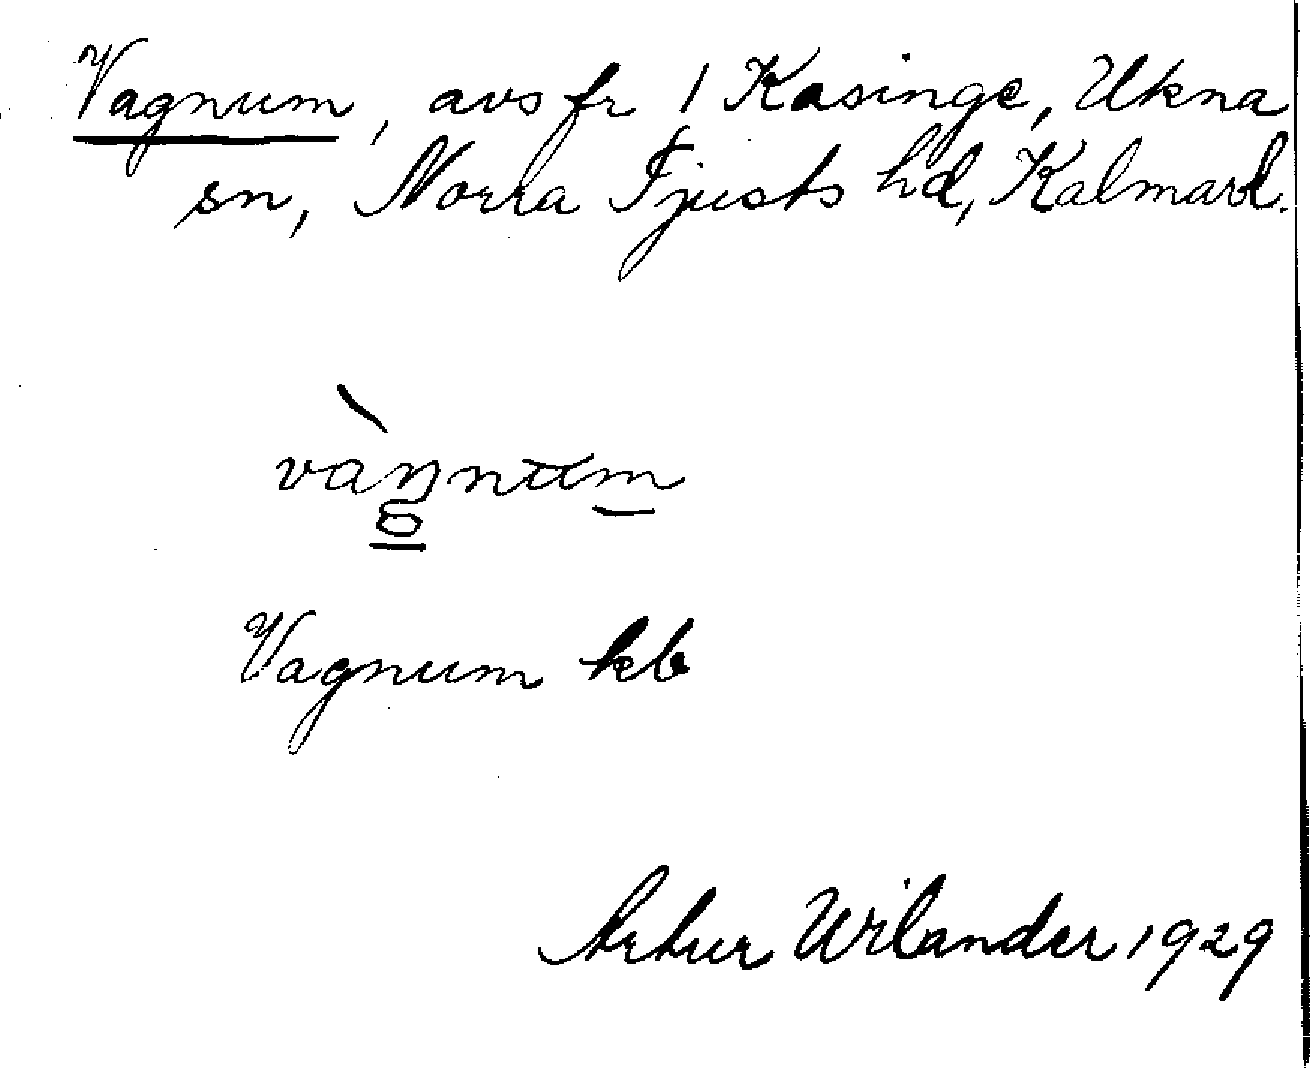 Vagnum, avs fr 1 Kasinge, Ukna
sn, Norra Tjusts hd, Kalmarl.
vàŋnum
Vagnum kb
Artur Wilander 1929